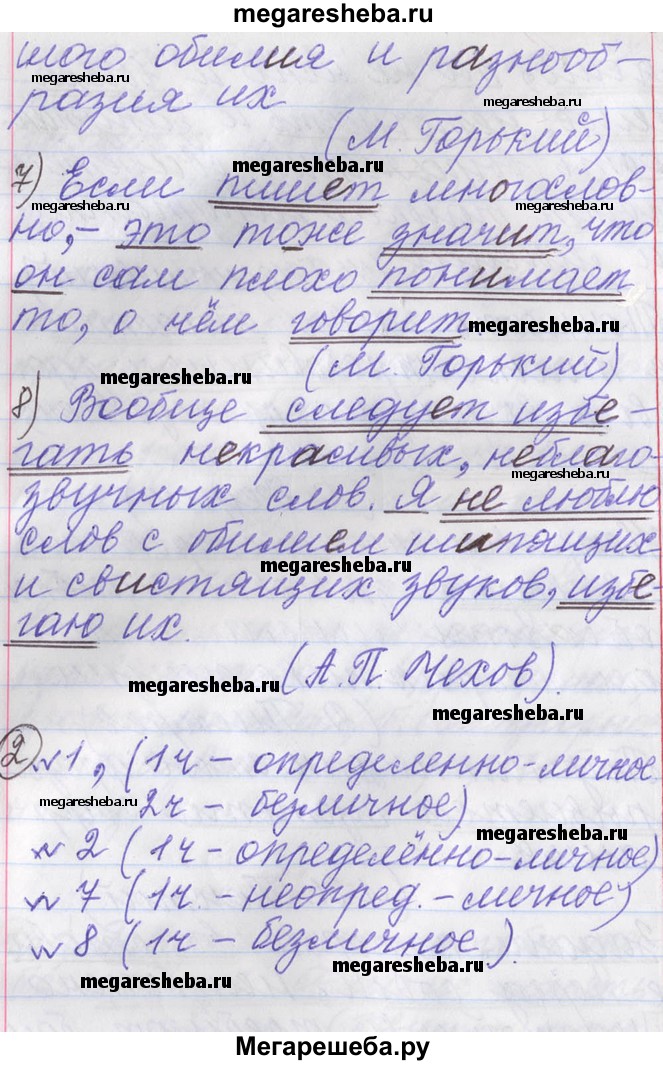 megaresheba.ru
шого обилия и разнооб-
megaresheba.ru
megaresheba.ru
разия их
(М. Горький)
megaresheba.ru
7) Если пишет многослов-
megaresheba.ru
megaresheba.ru
но,- это тоже значит, что
он сам плохо понимает
то, о чём говорит.
megaresheba.ru
(М. Горький)
megaresheba.ru
8) Вообще следует избе-
гать некрасивых, неблаго-
megaresheba.ru
звучных слов. Я не люблю
слов с обилием шипящих
megaresheba.ru
и свистящих звуков, избе-
гаю их.
(А.П. Чехов).
megaresheba.ru
megaresheba.ru
2 №1, (1ч - определенно-личное
megaresheba.ru
2ч - безличное)
megaresheba.ru
№ 2 (1ч - определённо-личное)
№ 7 (1ч. - неопред. - личное)
№ 8 (1ч - безличное).
megaresheba.ru
megaresheba.ru
Мегарешеба.ру